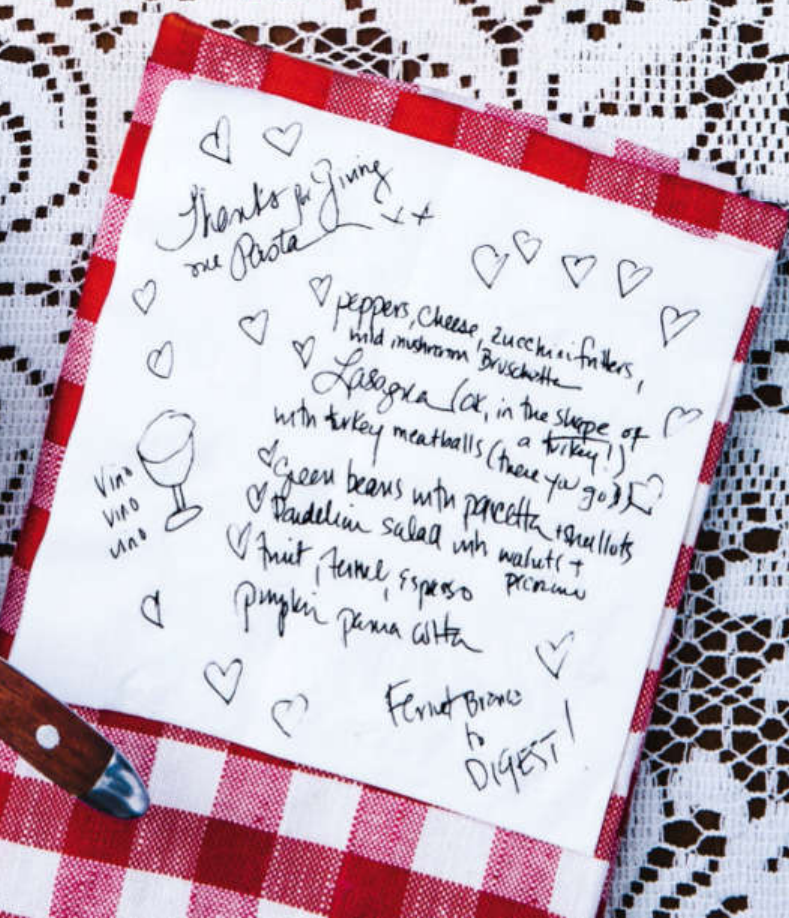 Thanks for Giving
me Pasta xx
peppers, cheese, zucchini fritters,
wild mushroom Bruschetta
Lasagna (OK, in the shape of
a turkey!)
with turkey meatballs (there you go!!)
Green beans with pancetta + shallots
Dandelion salad with walnuts +
pecorino
fruit, fennel, espresso
pumpkin panna cotta
Vino
Vino
vino
Fernet Branca
to
DIGEST!